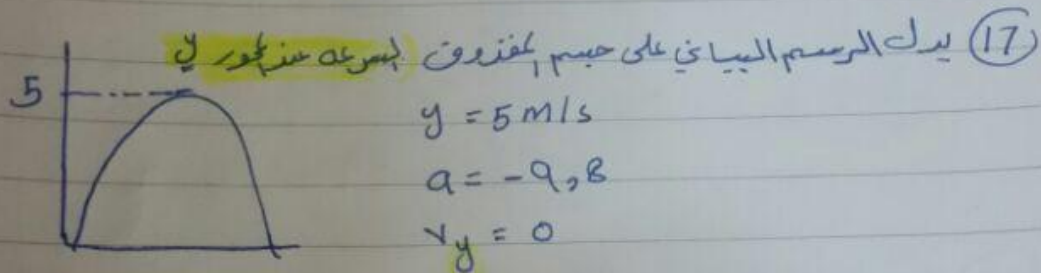 (17) يدل الرسم البياني على جسم مقذوف السرعة عند محور y
5
y = 5 m/s
a = -9,8
vy = 0